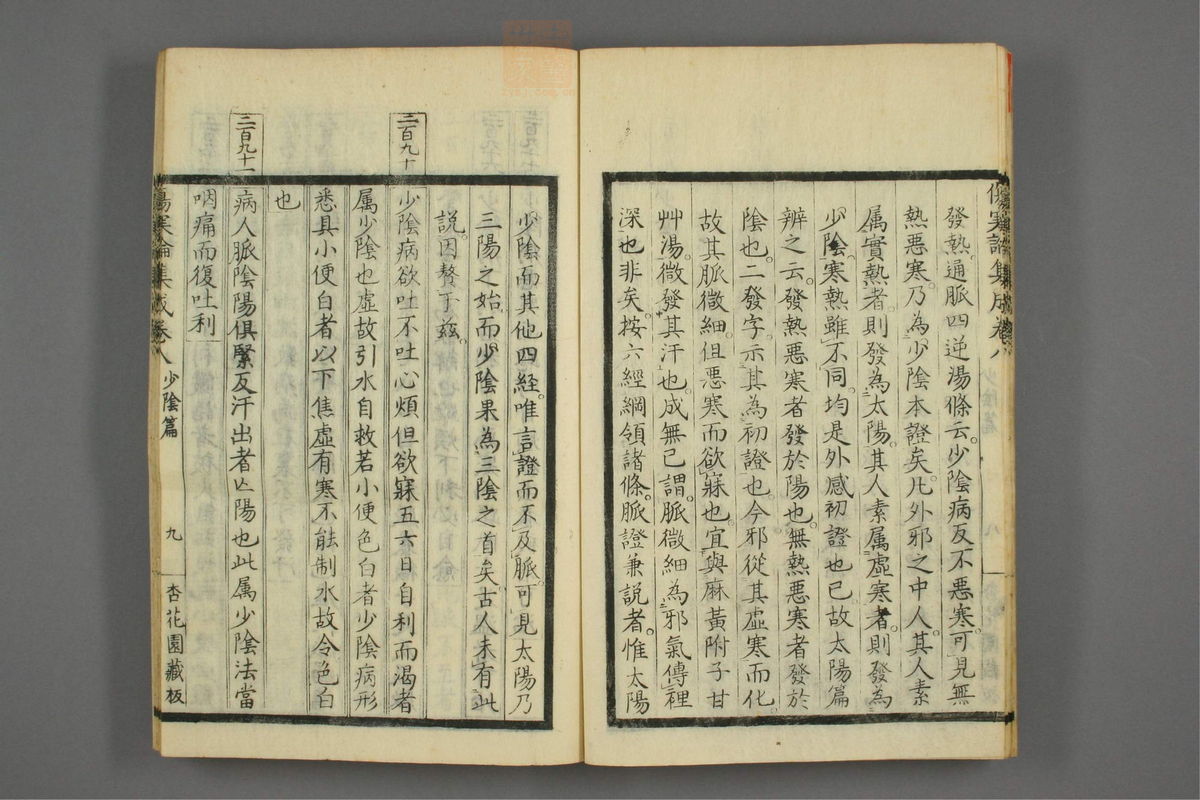 傷寒論集成卷八
發熱通脈四逆湯條云少陰病反不惡寒可見無
熱惡寒乃為少陰本證矣凡外邪之中人其人素
属實熱者則發為太陽其人素属虛寒者則發為
少陰寒熱雖不同均是外感初證也已故太陽篇
辨之云發熱惡寒者發於陽也無熱惡寒者發於
陰也二發字示其為初證也今邪從其虛寒而化
故其脈微細但惡寒而欲寐也宜與麻黃附子甘
艸湯微發其汗也成無已謂脈微細為邪氣傳裡
深也非矣按六經綱領諸條脈證兼說者惟太陽
少陰而其他四經唯言證而不及脈可見太陽乃
三陽之始而少陰果為三陰之首矣古人未有此
說因贅于茲
三百九十
少陰病欲吐不吐心煩但欲寐五六日自利而渴者
属少陰也虛故引水自救若小便色白者少陰病形
悉具小便白者以下焦虛有寒不能制水故令色白
也
三百九十一
病人脈陰陽俱緊反汗出者亾陽也此属少陰法當
咽痛而復吐利
傷寒論集成卷八 少陰篇 九 杏花園藏板